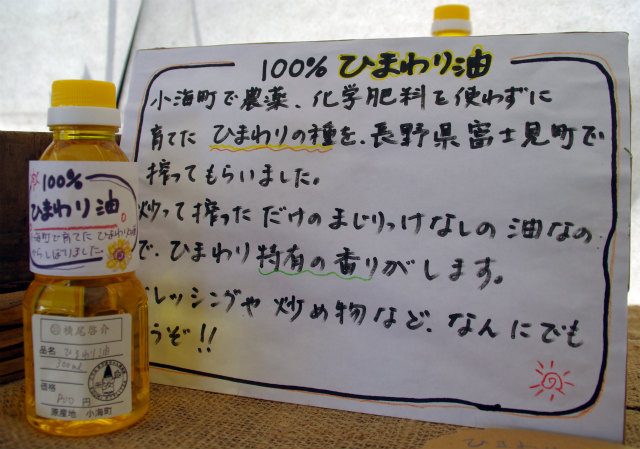 100% ひまわり油
小海町で農薬、化学肥料を使わずに
育てた ひまわりの種を、長野県富士見町で
搾ってもらいました。
炒って搾っただけのまじりっけなしの油なの
で、ひまわり特有の香りがします。
レッシングや炒め物など、なんにでも
うぞ!!
100%
ひまわり油
小海町で育てたひまわりの種
からしぼりました
横尾啓介
品名 ひまわり油
300mL
価格 円
産地 小海町